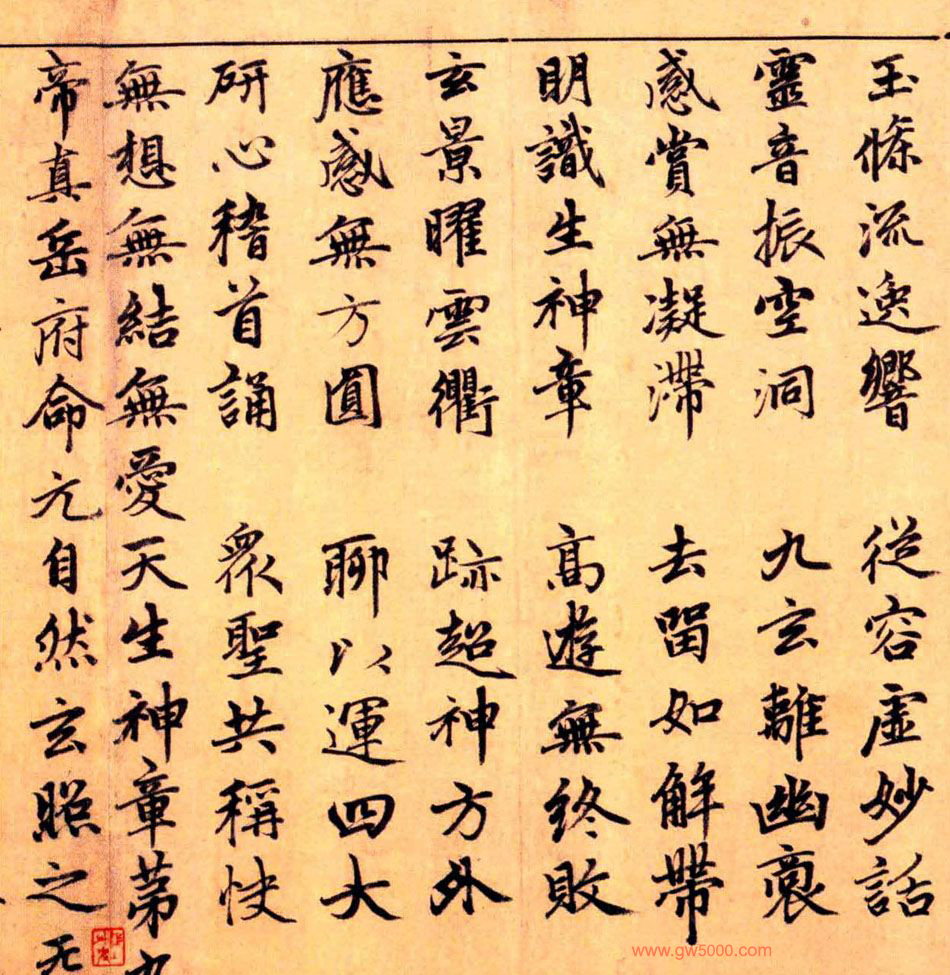 玉條流逸響 從容虛妙話
靈音振空洞 九玄離幽裔
感賞無凝滯 去留如解帶
明識生神章 高遊無終敗
玄景曜雲衢 跡超神方外
應感無方圓 聊以運四大
研心稽首誦 衆聖共稱快
無想無結無愛天生神章第九
帝真岳府命元自然玄照之炁
www.gw5000.com